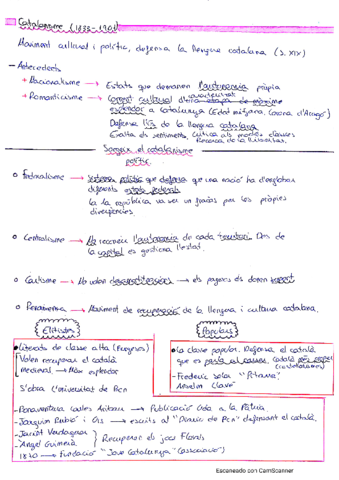 Catalanisme (1833-1901)
Moviment cultural i polític, defensa la llengua catalana (s. XIX)
- Antecedents
+ Nacionalisme → Estats que demanen l'autonomia pròpia
+ Romanticisme → Corrent cultural
esplendor a Catalunya (Edat mitjana, Corona d'Aragó)
Defensa de la llengua catalana
Exalta els sentiments,
Sorgeix el catalanisme
polític
Federalisme → Sistema polític que defensa que una nació ha d'englobar
diferents estats federals
La 1a república va ser un fracàs per les pròpies
divergències
Centralisme → No reconeix l'autonomia de cada territori. Des de
la capital es gestiona l'estat.
Carlisme → No volen → els pagesos els donen suport
Renaixença → Moviment de recuperació de la llengua i cultura catalana.
Elitista
Populars
Literats de classe alta (burgesos)
Volen recuperar el català
medieval → Màx esplendor
S'obra l'Universitat de Bcn
La classe popular. Defensa el català
que es parla al carrer
- Frederic Soler "Pitarra"
- Anselm Clavé
- Bonaventura Carles Aribau → Publicació Oda a la Pàtria
- Joaquim Rubió i Ors → escrits al "Diario de Bcn" defensant el català.
- Jacint Verdaguer
- Àngel Guimerà
Recuperen els jocs Florals
→ Fundació "Jove Catalunya" (associació)
Escaneado con CamScanner